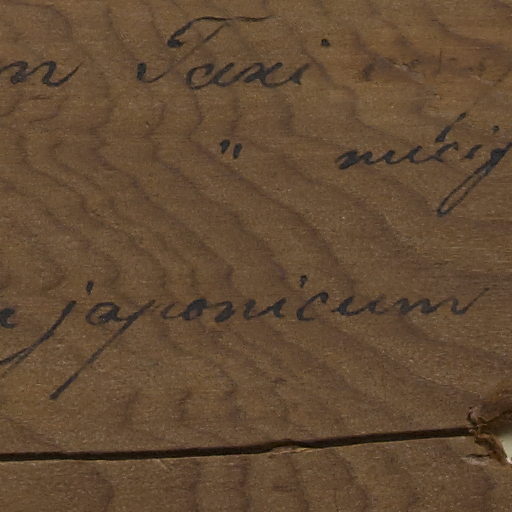 n Taxi
" nucif
japonicum